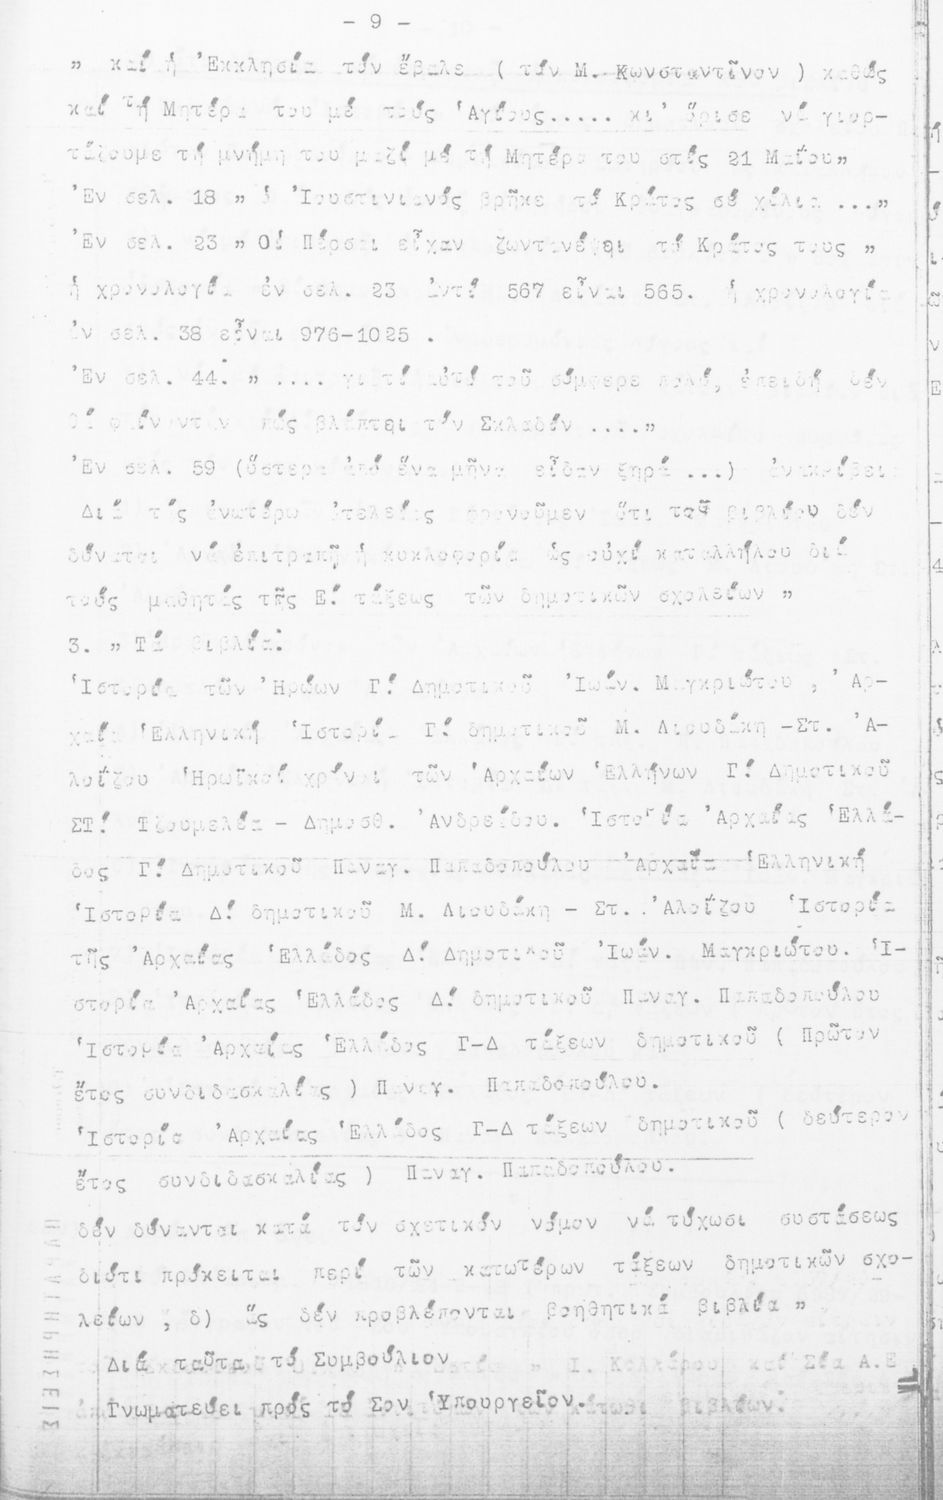 - 9 -
" καί ἡ Ἐκκλησία τόν ἔβαλε ( τόν Μ. Κωνσταντῖνον ) καθώς
καί τή Μητέρα του μέ τούς Ἁγίους..... κι' ὅρισε νά γιορ-
τάζουμε τή μνήμη του μαζί μέ τή Μητέρα του στίς 21 Μαΐου"
Ἐν σελ. 18 " ὁ Ἰουστινιανός βρῆκε τό Κράτος σέ χάλια ..."
Ἐν σελ. 23 " Οἱ Πέρσαι εἶχαν ζωντανέψει τό Κράτος τους "
ἡ χρονολογία ἐν σελ. 23 ἀντί 567 εἶναι 565. ἡ χρονολογία
ἐν σελ. 38 εἶναι 976-1025 .
Ἐν σελ. 44. " .... γιατί αὐτό τοῦ σύμφερε πολύ, ἐπειδή δέν
θά φαίνονταν πώς βλάπτει τόν Σκλαδόν ...."
Ἐν σελ. 59 (ὕστερα ἀπό ἕνα μῆνα εἶδαν ξηρά ...)
Διά τάς ἀνωτέρω ἀτελείας φρονοῦμεν ὅτι τοῦ βιβλίου δέν
δύναται νά ἐπιτραπῇ ἡ κυκλοφορία ὡς οὐχί καταλλήλου διά
τούς μαθητάς τῆς Ε΄ τάξεως τῶν δημοτικῶν σχολείων "
3. " Τά βιβλία:
Ἱστορία τῶν Ἡρώων Γ΄ Δημοτικοῦ Ἰωάν. Μαγκριώτου , Ἀρ-
χαία Ἑλληνική Ἱστορία Γ΄ δημοτικοῦ Μ. Λιουδάκη -Στ. Ἀ-
λοΐζου Ἡρωϊκοί χρόνοι τῶν Ἀρχαίων Ἑλλήνων Γ΄ Δημοτικοῦ
ΣΤ΄ Τζουμελέα - Δημοσθ. Ἀνδρεΐδου. Ἱστορία Ἀρχαίας Ἑλλά-
δος Γ΄ Δημοτικοῦ Παναγ. Παπαδοπούλου Ἀρχαῖα Ἑλληνική
Ἱστορία Δ΄ δημοτικοῦ Μ. Λιουδάκη - Στ. Ἀλοΐζου Ἱστορία
τῆς Ἀρχαίας Ἑλλάδος Δ΄ Δημοτικοῦ Ἰωάν. Μαγκριώτου. Ἱ-
στορία Ἀρχαίας Ἑλλάδος Δ΄ δημοτικοῦ Παναγ. Παπαδοπούλου
Ἱστορία Ἀρχαίας Ἑλλάδος Γ-Δ τάξεων δημοτικοῦ ( Πρῶτον
ἔτος συνδιδασκαλίας ) Παναγ. Παπαδοπούλου.
Ἱστορία Ἀρχαίας Ἑλλάδος Γ-Δ τάξεων δημοτικοῦ ( δεύτερον
ἔτος συνδιδασκαλίας ) Παναγ. Παπαδοπούλου.
δέν δύνανται κατά τόν σχετικόν νόμον νά τύχωσι συστάσεως
διότι πρόκειται περί τῶν κατωτέρων τάξεων δημοτικῶν σχο-
λείων , δ) ὥς δέν προβλέπονται βοηθητικά βιβλία "
Διά ταῦτα τό Συμβούλιον
Γνωματεύει πρός τό Σον Ὑπουργεῖον.